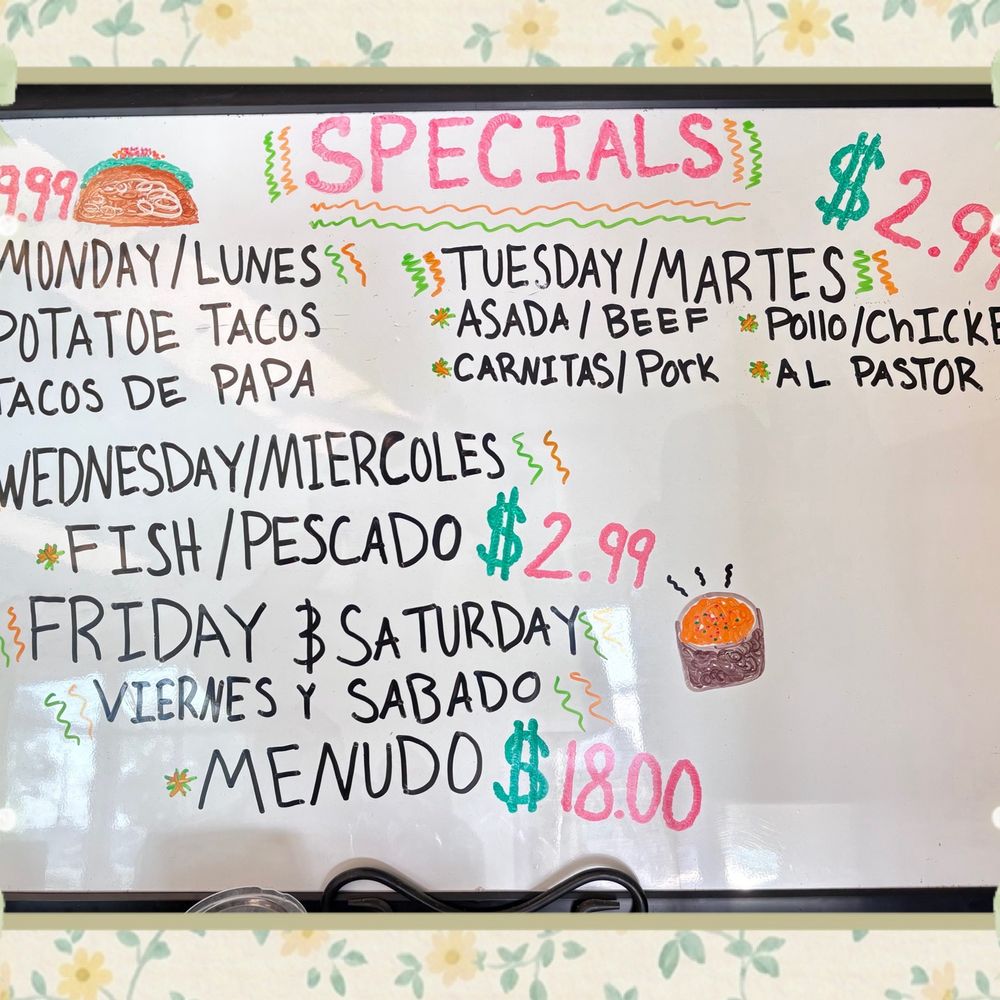 SPECIALS
9.99
$2.99
MONDAY/LUNES
POTATOE TACOS
TACOS DE PAPA
TUESDAY/MARTES
ASADA/BEEF
Pollo/ChICKE
CARNITAS/Pork
AL PASTOR
WEDNESDAY/MIERCOLES
FISH/PESCADO $2.99
FRIDAY & SATURDAY
VIERNES Y SABADO
MENUDO $18.00